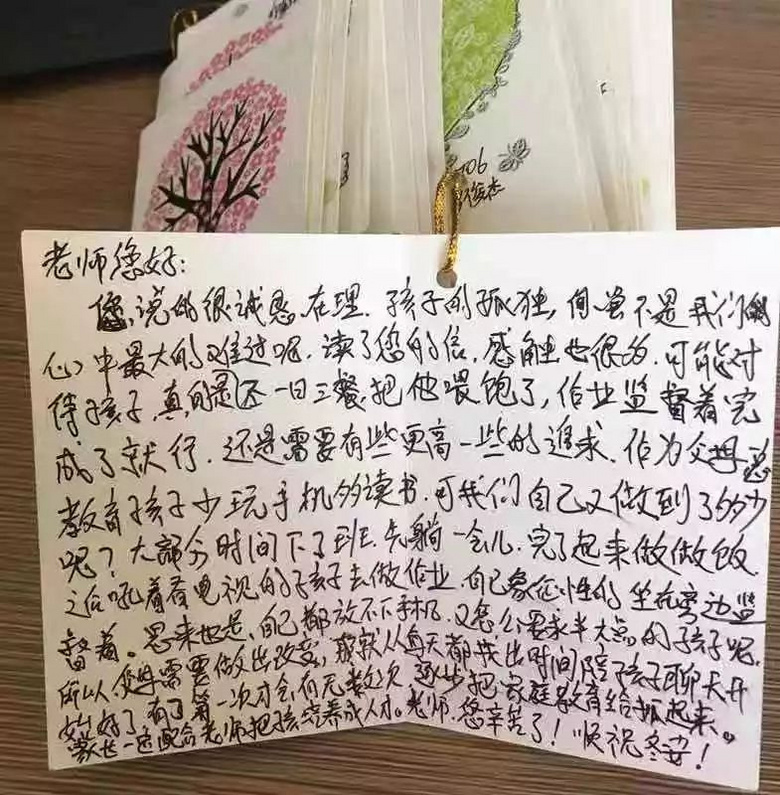 106
老师您好:
您说的很诚恳在理.孩子的孤独,何尝不是我们的
心中最大的难过呢.读了您的信,感触也很多.可能对
待孩子,真的是不一日三餐,把他喂饱了,作业监督着完
成了就行.还是需要有些更高一些的追求.作为父母总
教育孩子少玩手机多读书.可我们自己又做到了多少
呢?大部分时间下了班.先躺一会儿.完了起来做做饭.
之后吼着看电视的子孩子去做作业.自己象征性的坐在旁边监
督着。思来也是,自己都放不下手机.又怎么要求半大点的子孩子呢.
所以 需要做出改变,那就从每天都找出时间陪子孩子聊天开
始好了.有了第一次才会有无数次.逐步把家庭教育给抓起来。
家长一定配合老师把孩培养成人才。老师,您辛苦了!顺祝冬安!